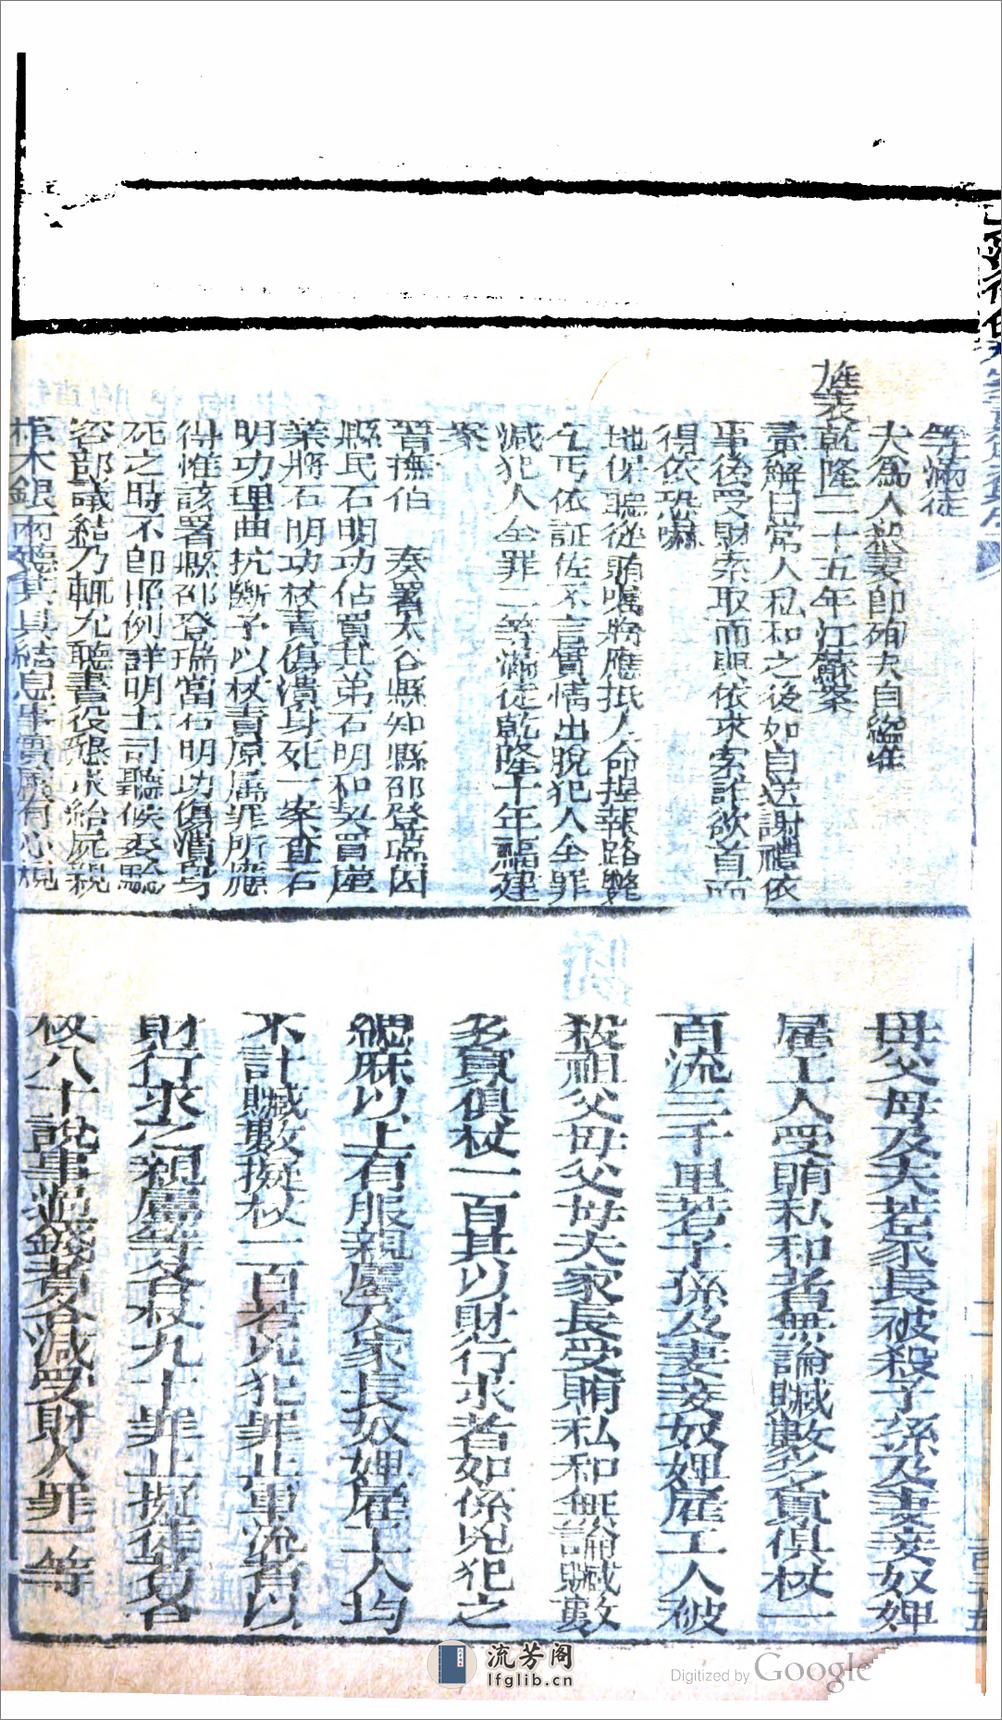 等滿徒
夫為人殺妻即殉夫自縊准
旌表乾隆二十五年江蘇案
彙解曰常人私和之後如自送謝禮依
事後受財索取而與依求索詐欲首而
得依恐嚇
地保聽從賄囑將應抵人命捏報路斃
乞丐依証佐不言實情出脫犯人全罪
減犯人全罪二等滿徒乾隆十年福建
案
晉撫伯 奏署太谷縣知縣邵登瑞因
縣民石明功佔買其弟石明和契買座
業將石明功杖責傷潰身死一案查石
明功理曲抗斷予以杖責原屬罪所應
得惟該署縣邵登瑞當石明功傷潰身
死之時不即照例詳明上司聽候委驗
咨部議結乃輒允聽書役懇求給屍親
棺木銀兩葬具結息事實屬有心規
母父母及夫若家長被殺子孫及妻妾奴婢
雇工人受賄私和者無論贓數多寡俱杖一
百流三千里若子孫及妻妾奴婢雇工人被
殺祖父母父母夫家長受賄私和無論贓數
多寡俱杖一百其以財行求者如係兇犯之
緦麻以上有服親屬及家長奴婢雇工人均
不計贓數擬杖一百若兇犯罪止軍流者以
財行求之親屬等各杖九十罪止擬徒者各
杖八十說事過錢者各減受財人罪一等
流芳阁
lfglib.cn
Digitized by Google